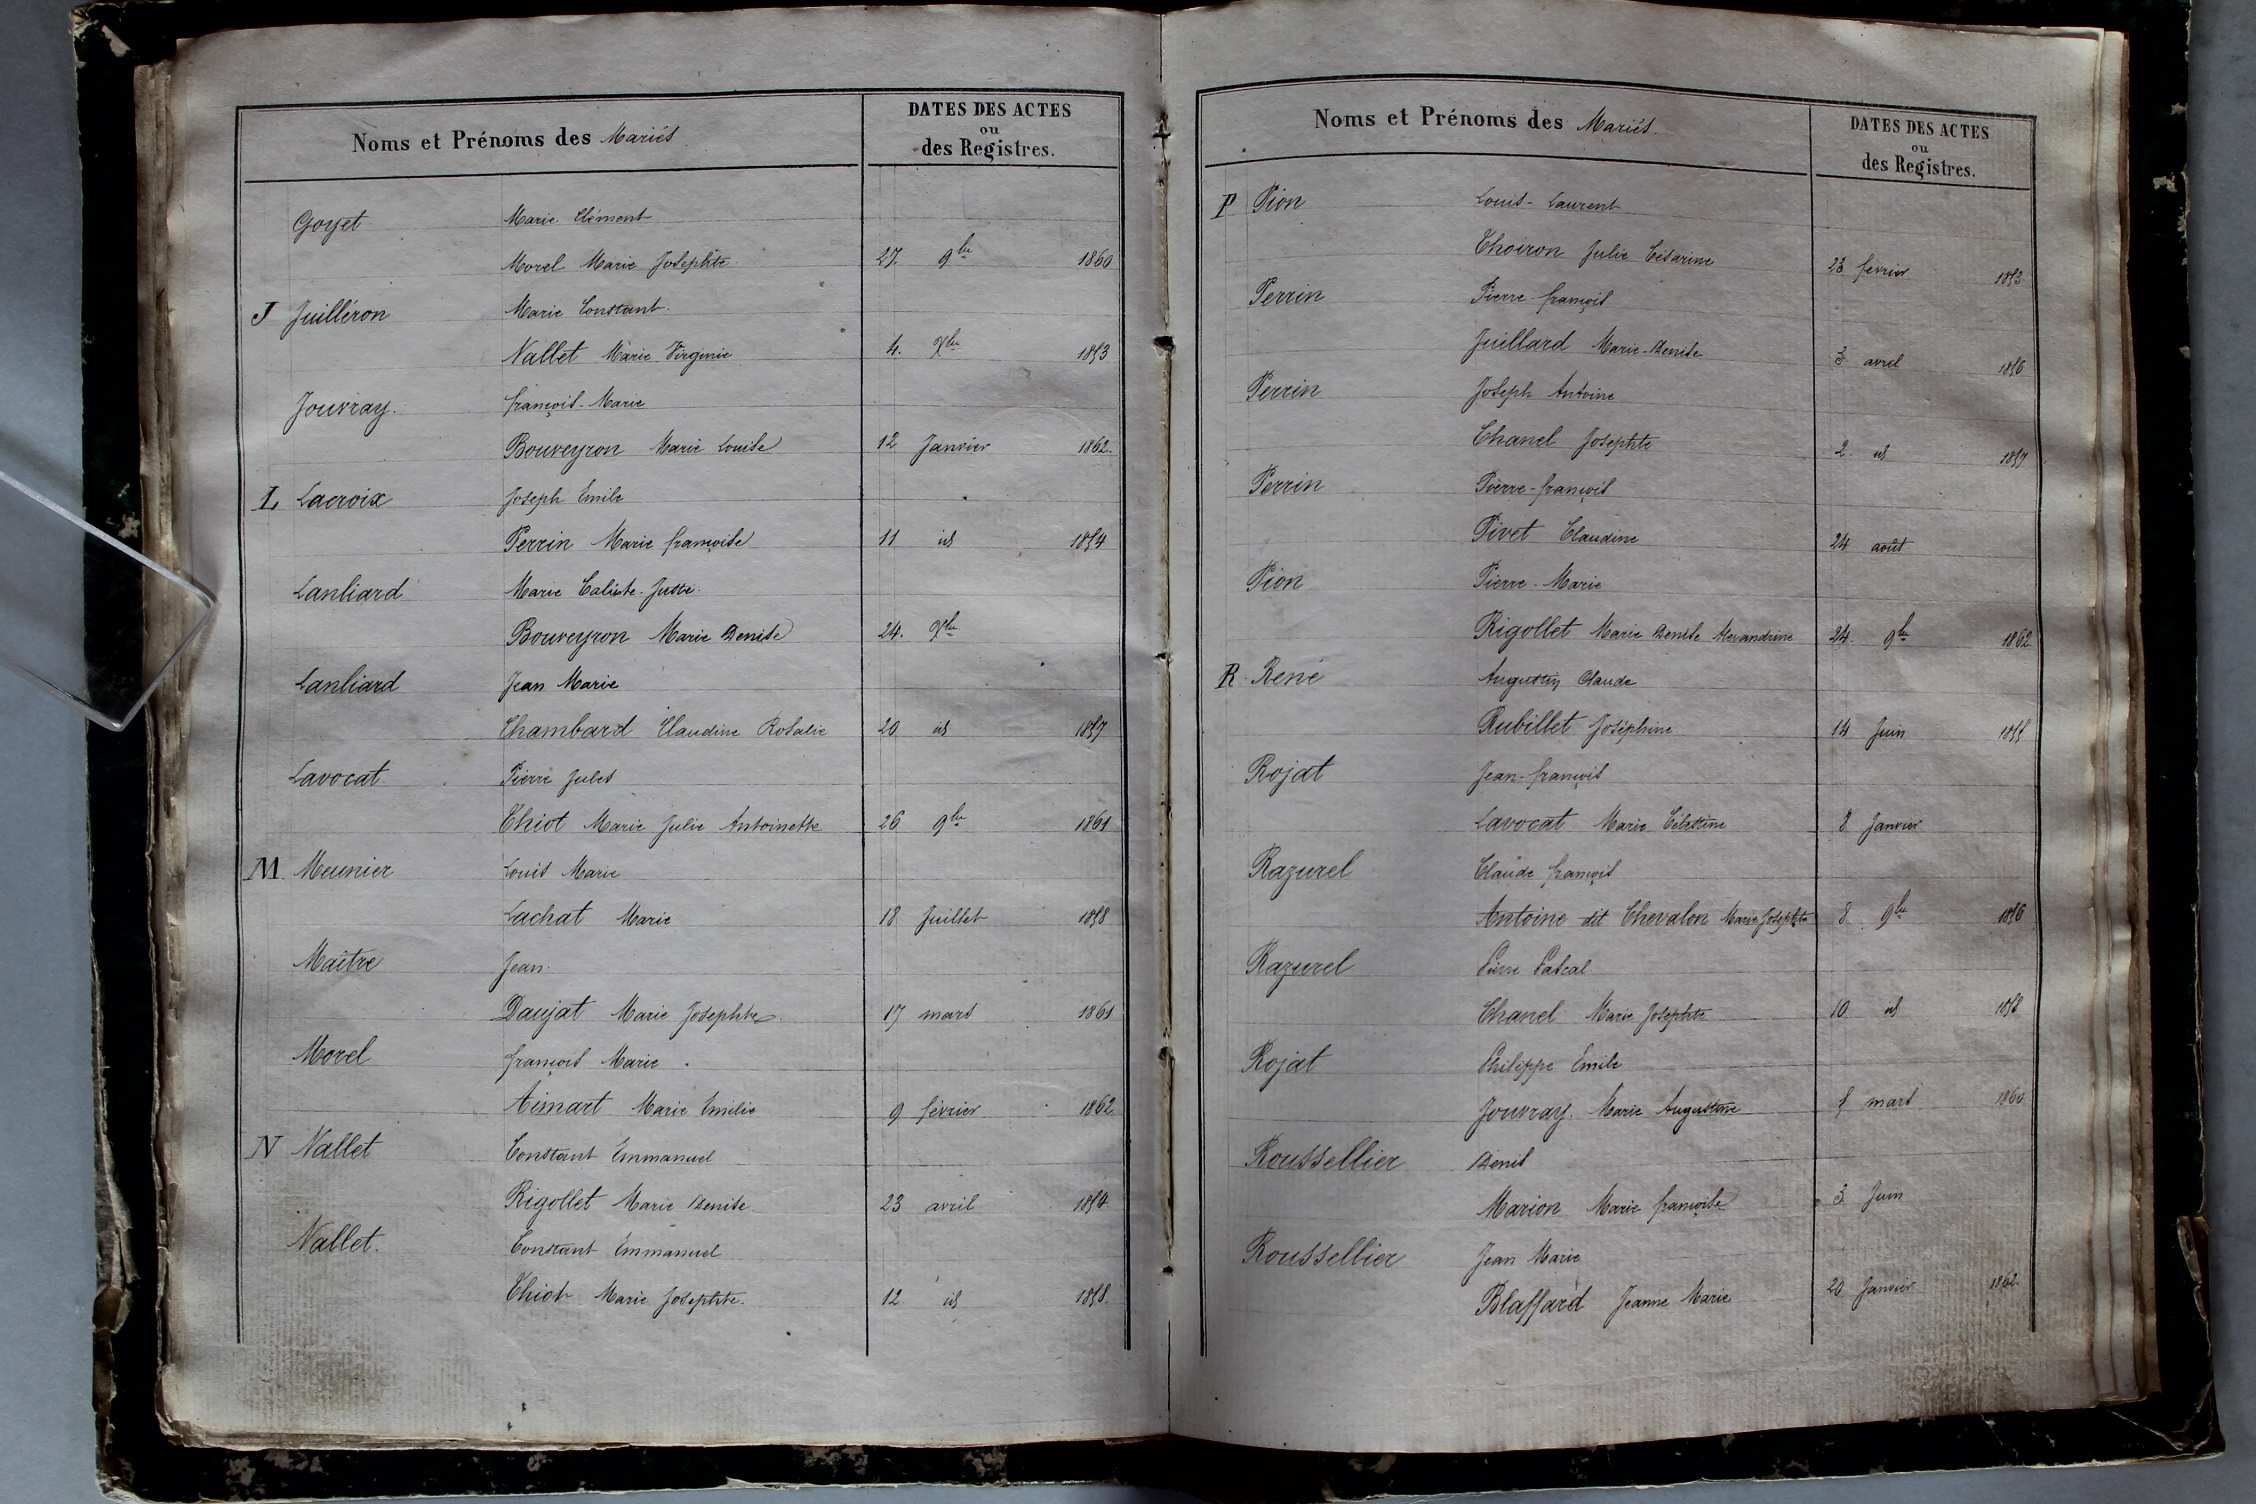 Noms et Prénoms des Mariés
DATES DES ACTES
ou
des Registres.
Goyet Marie Clément
Morel Marie Josephte 27. 9bre 1860
J Juilléron Marie Constant.
Nallet Marie Virginie 4. Xbre 1853
Jouvray. françois-Marie
Bouveyron Marie Louise 12 Janvier 1862.
L Lacroix Joseph Emile
Perrin Marie françoise 11 id 1854
Lanliard Marie Calixte-Juste.
Bouveyron Marie Denise 24. Xbre
Lanliard Jean Marie
Chambard Claudine Rosalie 20 id 1857
Lavocat Pierre Jules
Chiot Marie Julie Antoinette 26 9bre 1861
M Meunier Louis Marie
Luchat Marie 18 Juillet 1858
Maître Jean.
Daujat Marie Josephte 17 mars 1861
Morel françois Marie
Aimart Marie Emilie 9 février 1862
N Nallet Constant Emmanuel
Rigollet Marie Denise 23 avril 1854
Nallet. Constant Emmanuel
Chiot Marie Josephte. 12 id 1858.
Noms et Prénoms des Mariés.
DATES DES ACTES
ou
des Registres.
P Pion Louis-Laurent
Thoiron Julie Césarine 23 février 1853
Perrin Pierre-françois
Juillard Marie-Denise 3 avril 1856
Perrin Joseph Antoine
Chanel Josephte 2. id 1857
Perrin Pierre-françois
Pivet Claudine 24 août
Pion Pierre-Marie
Rigollet Marie Denise Alexandrine 24. 9bre 1862
R René Augustin Claude
Rubillet Joséphine 14 Juin 1855
Rojat Jean-françois
Lavocat Marie Célestine 8 Janvier
Razurel Claude françois
Antoine dit Chevalon Marie Josephte 8. 9bre 1856
Razurel Pierre Pascal
Chanel Marie Josephte 10 id 1858
Rojat Philippe Emile
Jouvray. Marie Augustine 5 mars 1860
Roussellier Denis
Marion Marie françoise 3 Juin
Roussellier Jean Marie
Blaffard Jeanne Marie 20 Janvier 1862